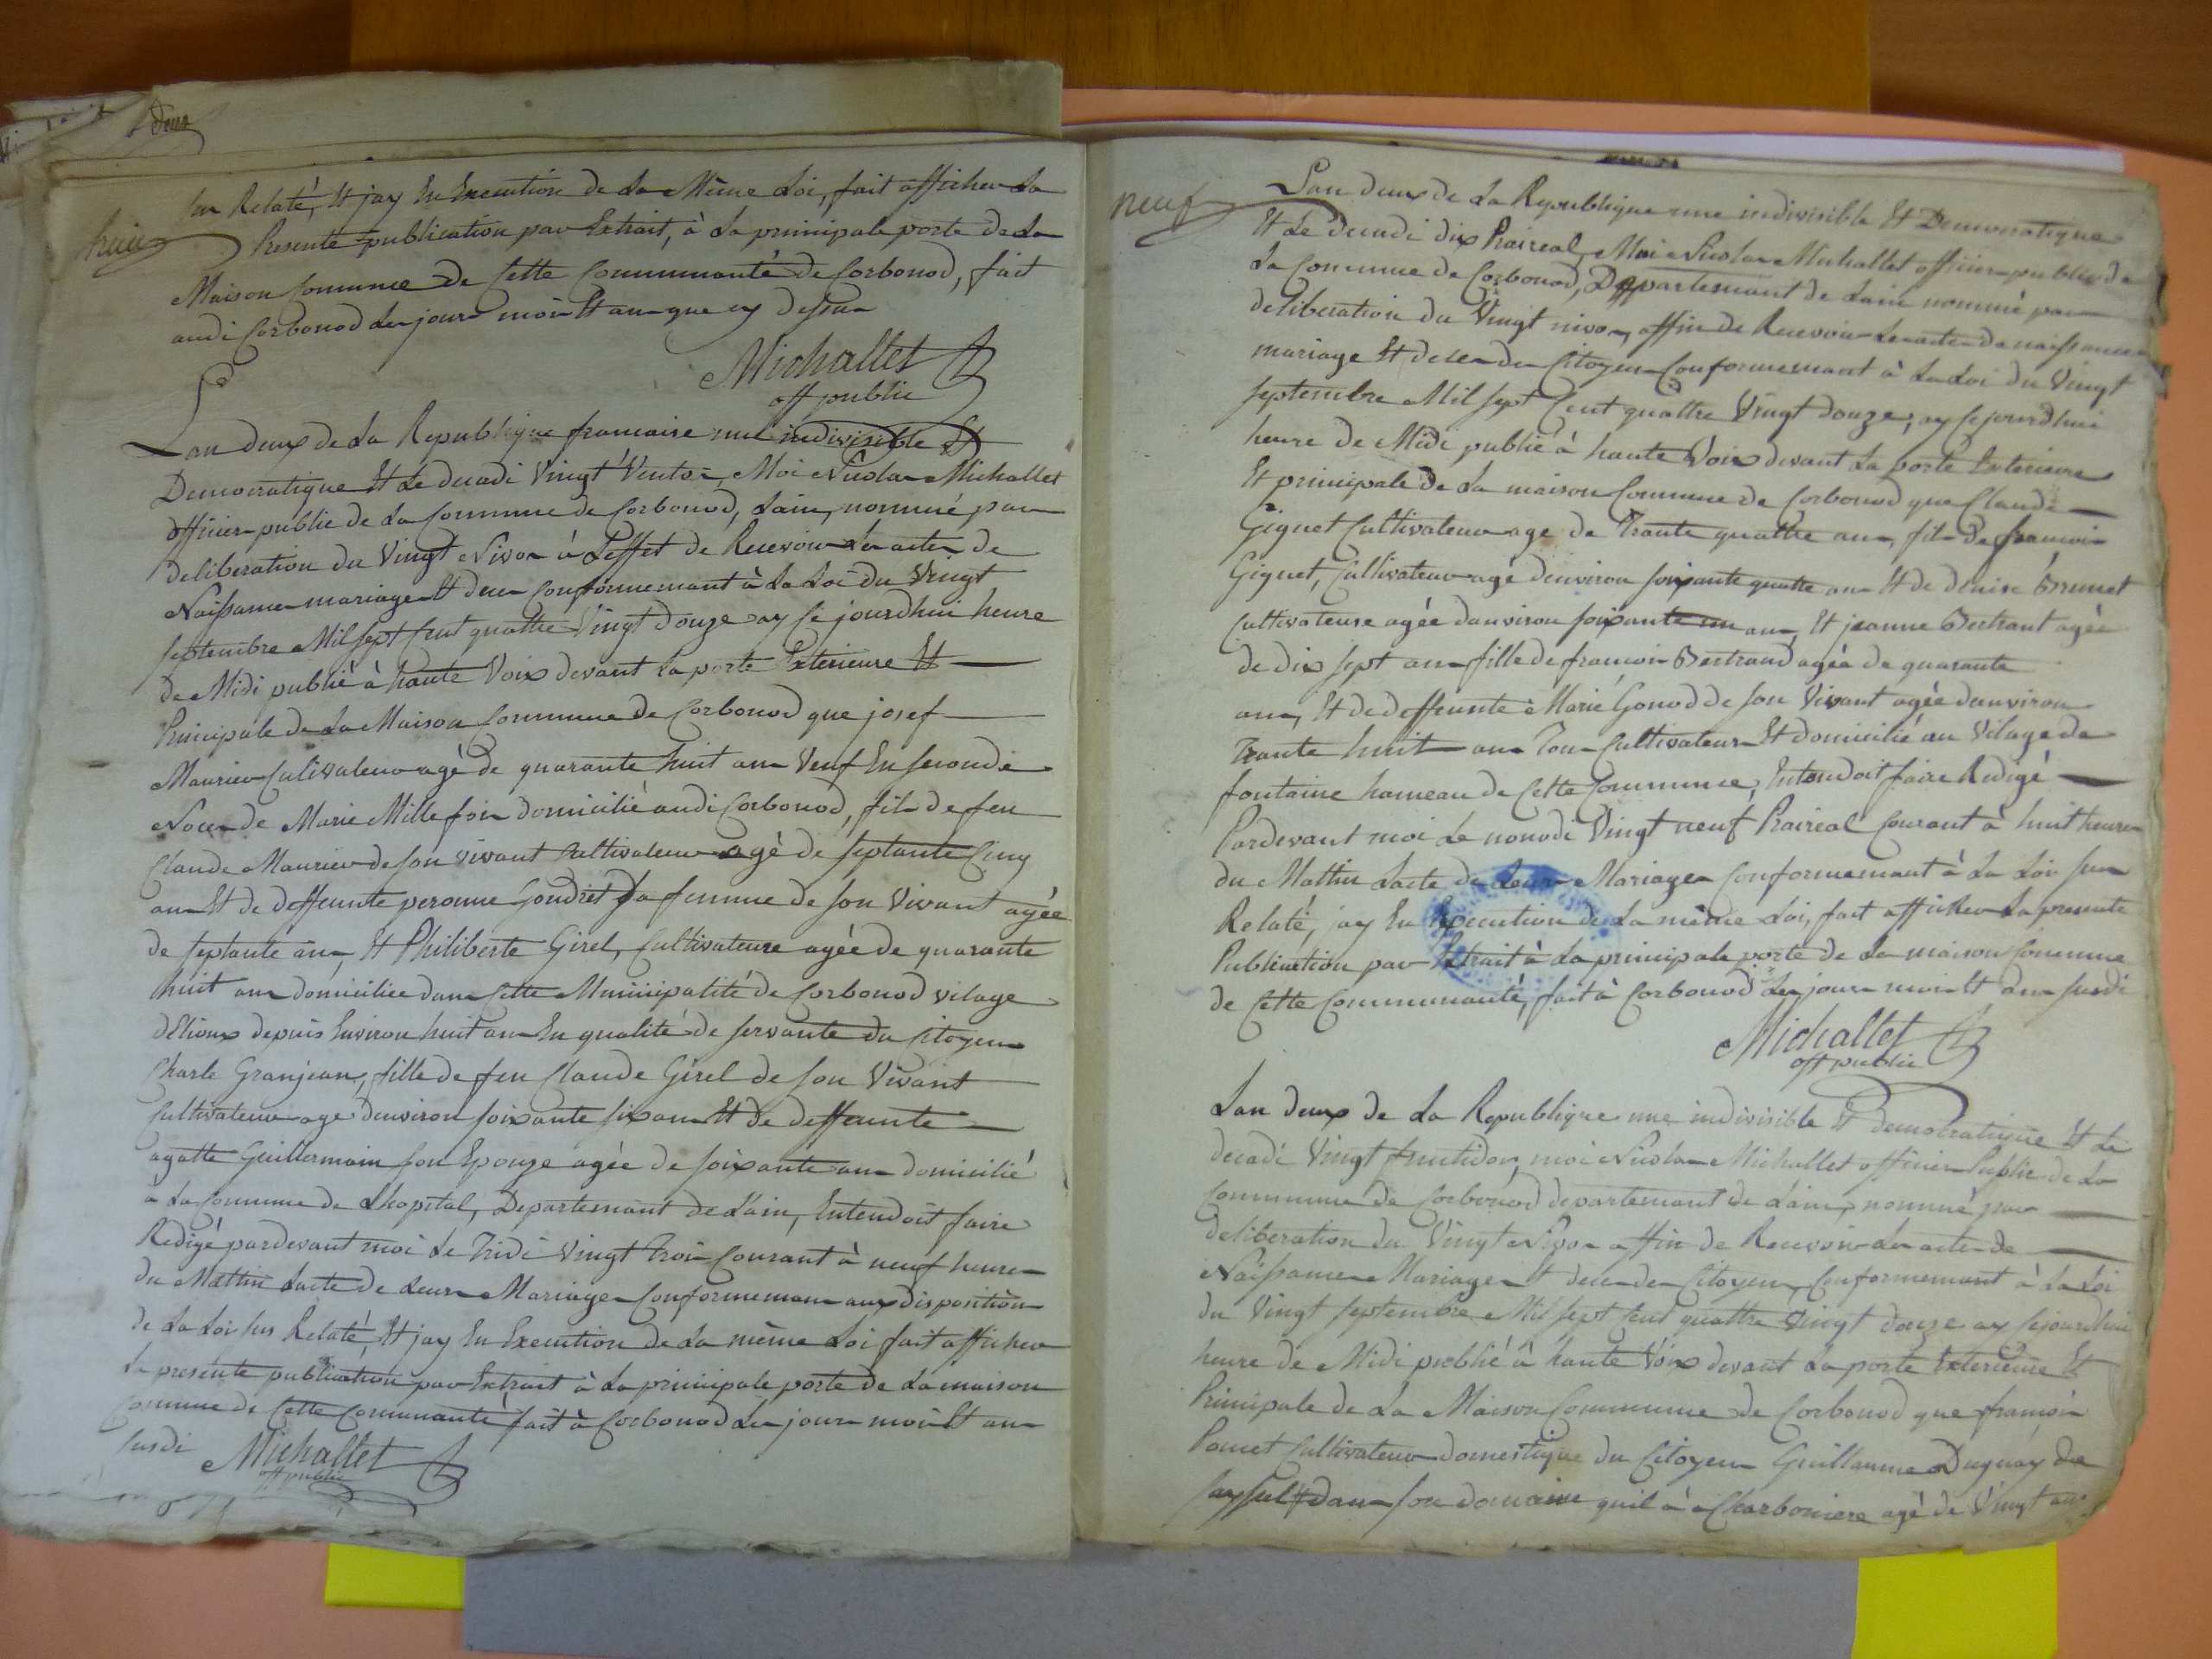 deux
huit
sus Relaté, Et jay En Execution de La Même Loi, fait afficher La
Presente publication par Extrait, à La principale porte de La
Maison Commune de Cette Communauté de Corbonod, fait
audi Corbonod Les jours mois Et an que cy dessus
Michallet
off public
Lan deux de La Republique francaise une indivisible Et
Democratique Et Le decadi Vingt Ventos, Moi Nicolas Michallet
officier public de La Commune de Corbonod, Lain, nommé par
deliberation du Vingt Nivos à Leffet de Recevoir Les actes de
Naissances mariages Et deces Conformemant à La Loi du Vingt
septembre Mil sept Cent quattre Vingt Douze ay Ce jourdhui heure
de Midi publié à haute Voix devant La porte Exterieure Et
Principale de La Maison Commune de Corbonod que josef
Maurier Cultivateur agé de quarante huit ans Veuf En seconde
Noces de Marie Millefois domicilié audi Corbonod, fils de feu
Claude Maurier de son vivant Cultivateur agé de septante Cinq
ans Et de deffeunte peronne Goudret sa femme de son Vivant agée
de septante ans, Et Philiberte Girel, Cultivateure agée de quarante
huit ans domiciliée dans Cette Municipalité de Corbonod vilage
dElioux depuis Environ huit ans En qualité de servante du Citoyen
Charle Granjean, fille de feu Claude Girel de son Vivant
Cultivateur agé denviron soixante six ans Et de deffeunte
agatte Guillermain son Epouze agée de soixante ans domicilié
à La Commune de Lhopital, Departemant de Lain, Entendoit faire
Redigé pardevant moi Le Tridi Vingt Trois Courant à neuf heures
du Mattin Lacte de Leurs Mariages Conformemant aux disposition
de La Loi sus Relaté, Et jay En Execution de La même Loi fait afficher
La presente publication par Extrait à La principale porte de La maison
Commune de Cette Communauté fait à Corbonod Les jours mois Et an
susdi
Michallet
off public
neuf
Lan deux de La Republique une indivisible Et Democratique
Et Le decadi dix Praireal, Moi Nicolas Michallet officier public de
La Commune de Corbonod, Departemant de Lain nommé par
deliberation du Vingt nivos, affin de Recevoir Les actes de naissances
mariage Et deces des Citoyens Conformemant à La Loi du Vingt
septembre Mil sept Cent quattre Vingt douze, ay Cejourdhui
heure de Midi publié à haute Voix devant La porte Exterieure
Et principale de La maison Commune de Corbonod que Claude
Gignet Cultivateur age de Trante quattre ans, fils De francois
Gignet, Cultivateur agé denviron soixante quatre ans Et de denise Brunet
Cultivateure agée danviron soixante un ans, Et jeanne Bertrant agée
de dix sept ans fille de francois Bertrand agée de quarante
ans, Et de deffeunte Marie Gonod de son Vivant agée danviron
Trante huit ans Tous Cultivateurs Et domicilié au Vilage de
fontaine hameau de Cette Commune, Entendoit faire Redigé
Pardevant moi Le nonodi Vingt neuf Praireal Courant à huit heures
du Mattin Lacte de Leurs Mariages Conformemant à La Loi sus
Relaté, jay En Execution de La même Loi, fait afficher La presente
Publication par Extrait à La principale porte de La maison Commune
de Cette Communauté, fait à Corbonod Les jours mois Et an susdi
Michallet
off public
Lan deux de La Republique une indivisible Et democratique Et Le
decadi Vingt fructidor, moi Nicolas Michallet officier Public de La
Commune de Corbonod departemant de Lain, nommé par
deliberation du Vingt Nivos affin de Recevoir Les actes de
Naissances Mariages Et deces des Citoyens, Conformemant à La Loi
du Vingt septembre Mil sept Cent quattre Vingt douze ay Cejourdhui
heure de Midi publié à haute Voix devant La porte Exterieure Et
Principale de La Maison Commune de Corbonod que francois
Poncet Cultivateur domestique du Citoyen Guillaume Duguay de
Seyssel dans son domaine quil à à Charboniere agé de Vingt ans